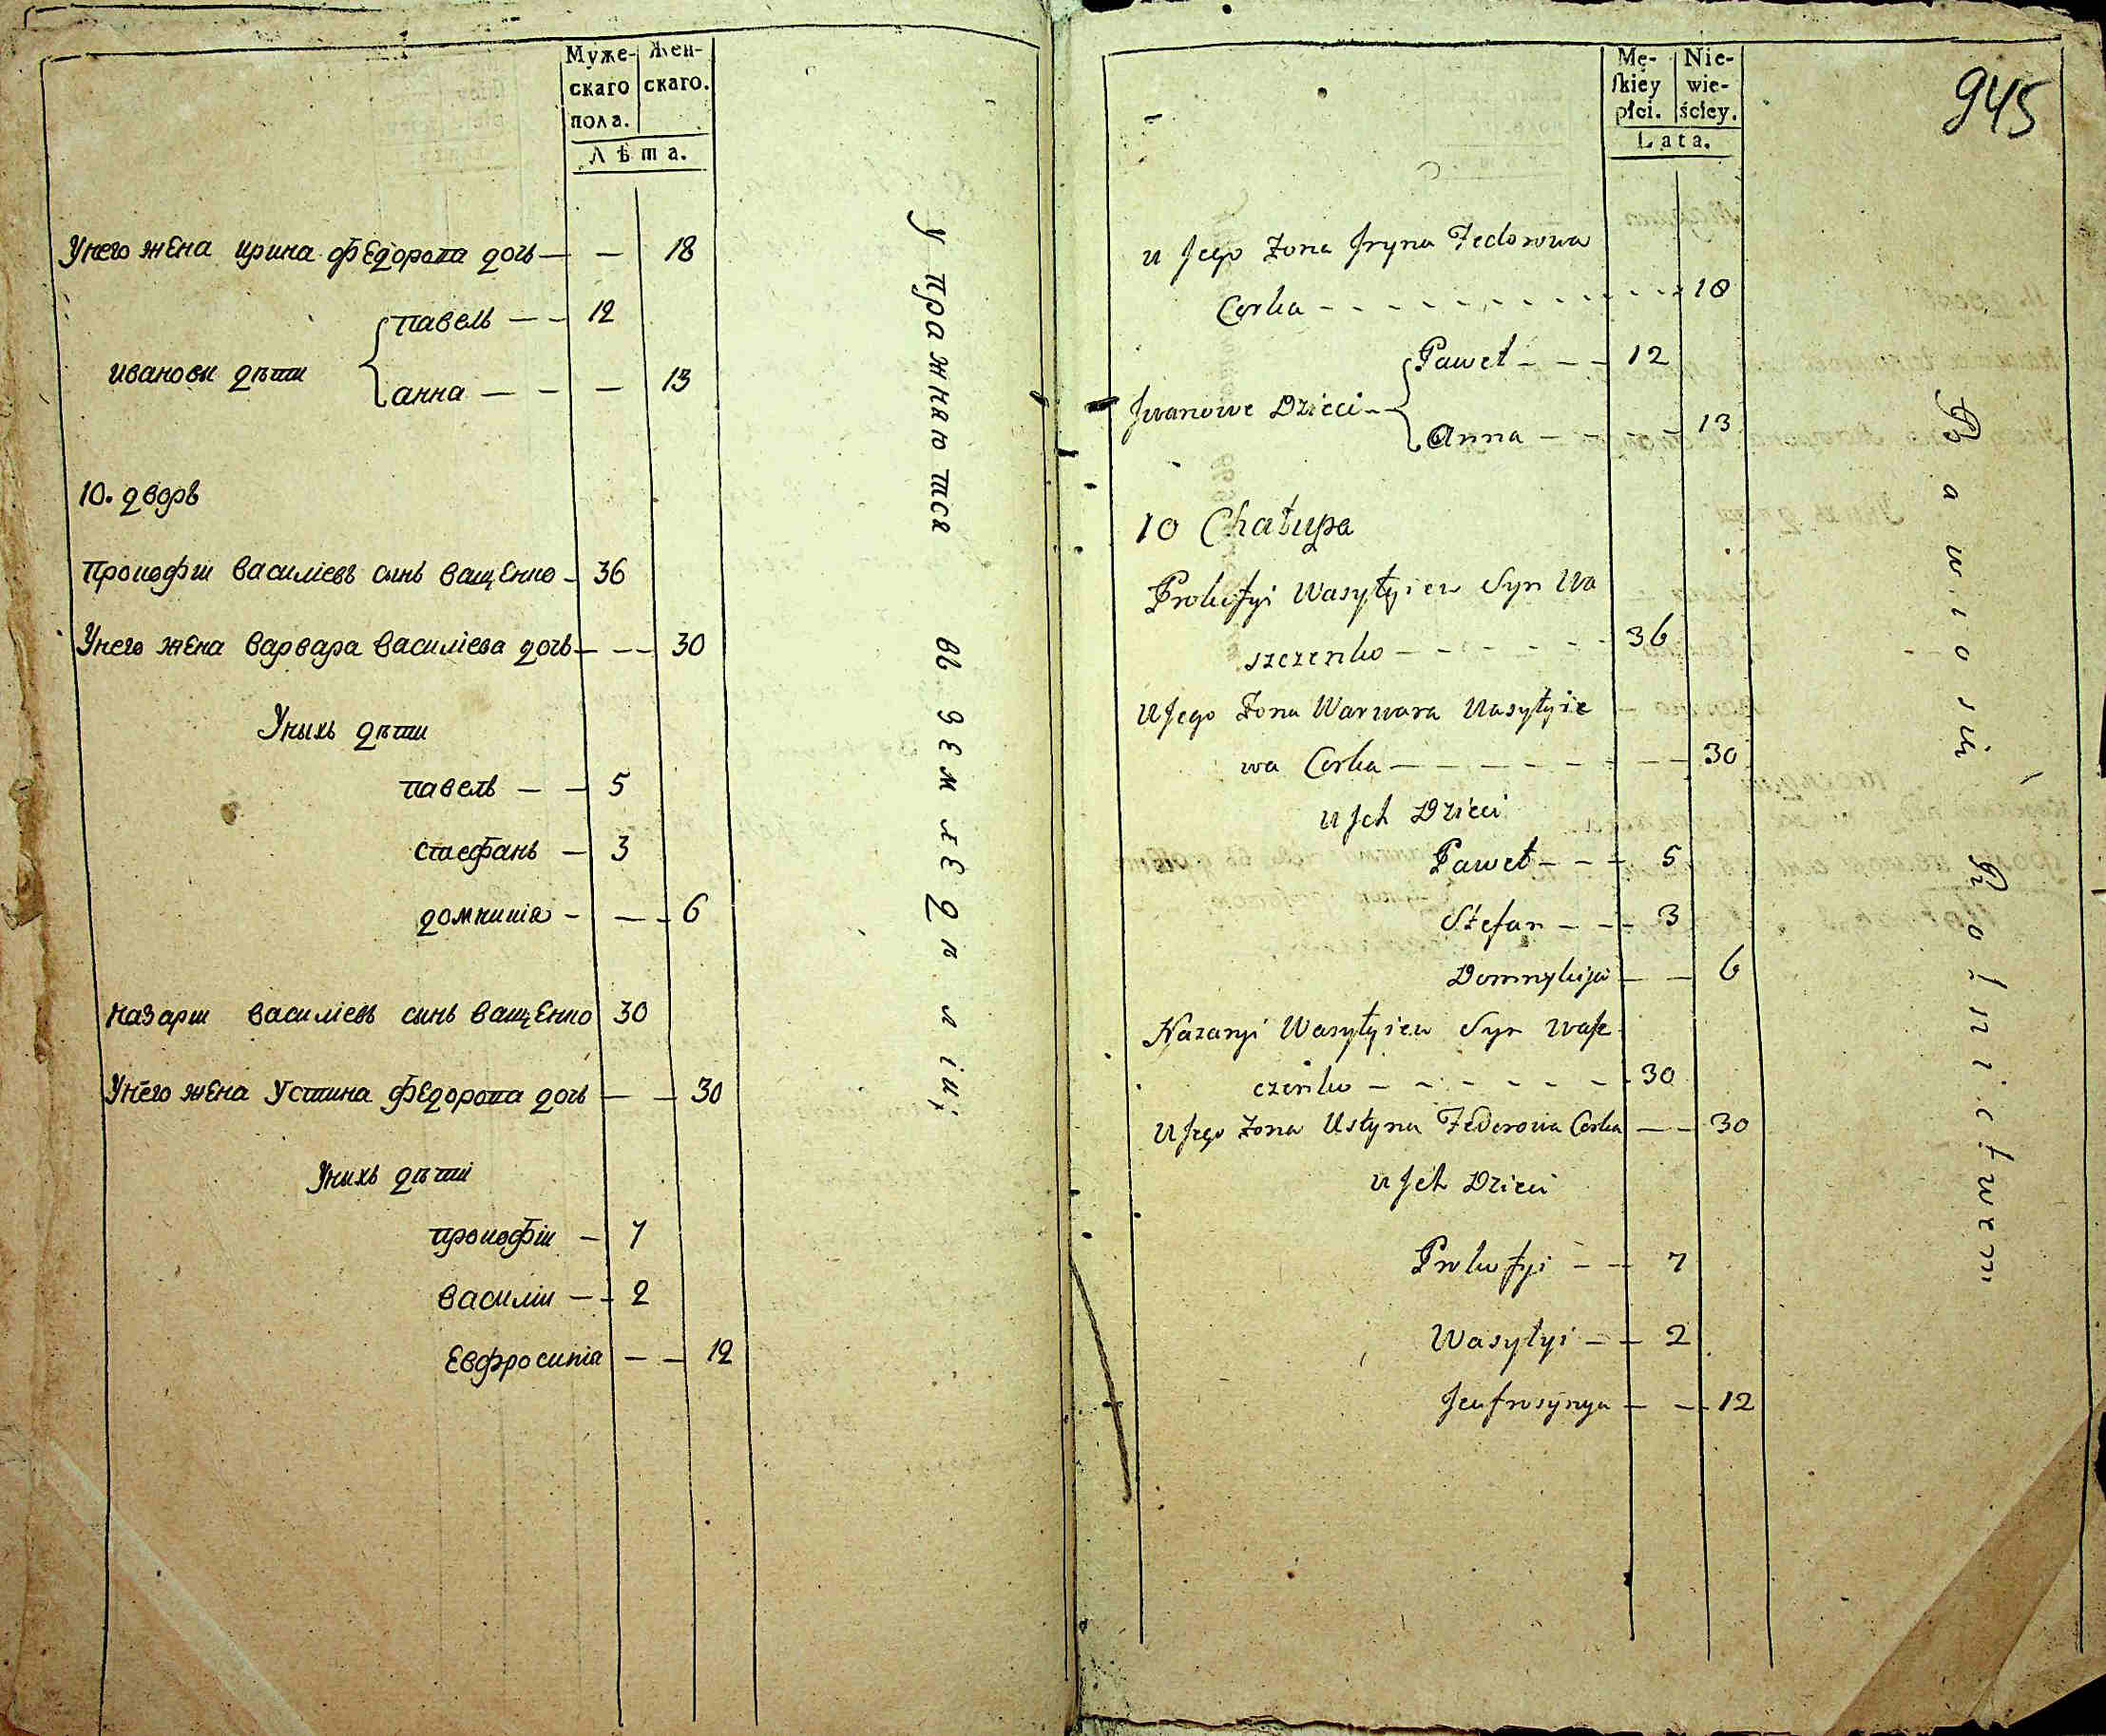 Муже- Жен-
скаго скаго.
пола.
Лѣта.
Унего жена ирина федорова дочь — — 18
павелъ — — 12
ивановы дѣти
анна — — — 13
10. дворъ
Прокофiи василiевъ сынъ ващенко — 36
Унего жена варвара василiева дочь — — — 30
Унихъ дѣти
павелъ — — 5
стефанъ — 3
домникiа — — — 6
назарiи василiевъ сынъ ващенко 30
Унего жена устина федорова дочь — — 30
Унихъ дѣти
прокофiи — 7
василiи — — 2
Евфросинiа — — 12
Упражняются въ земледѣлiи;
945
Mę- Nie-
skiey wie-
płci. ściey.
Lata.
u Jego Żona Jryna Fedorowa
Corka — — — — — — — — — — 18
Paweł — — — 12
Jwanowe Dzieci —
Anna — — — — 13
10 Chałupa
Prokofyi Wasyłyiew Syn Wa
szczenko — — — — — — 36
u Jego Żona Warwara Wasyłyie
wa Corka — — — — — — — — 30
u Jch Dzieci
Paweł — — — 5
Stefan — — — 3
Domnykija — — 6
Nazaryi Wasyłyiew Syn Wasz
czenko — — — — — — 30
u Jego Żona Ustyna Fedorowa Corka — — 30
u Jch Dzieci
Prokofyi — — 7
Wasyłyi — — 2
Jeufrosynya — — 12
Bawio się Rolnictwem